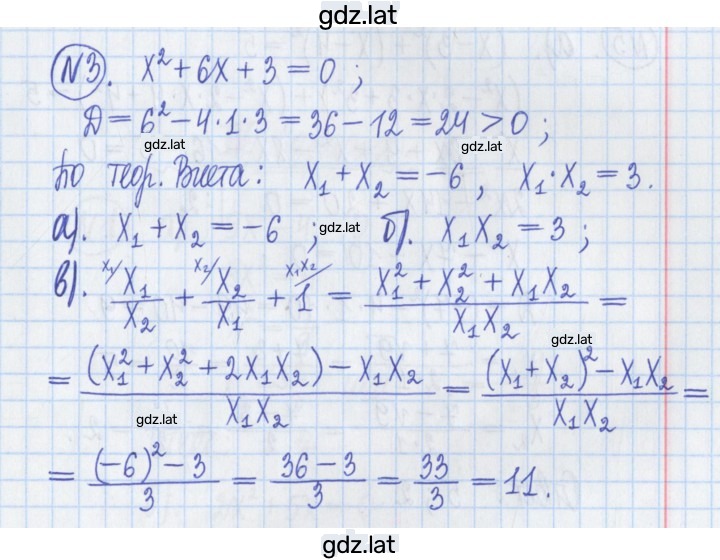 gdz.lat
№3. x² + 6x + 3 = 0 ;
Д = 6² − 4·1·3 = 36 − 12 = 24 > 0 ;
gdz.lat gdz.lat
По теор. Виета: x₁ + x₂ = −6, x₁·x₂ = 3.
а). x₁ + x₂ = −6 ; б). x₁x₂ = 3 ;
gdz.lat
в). ˣ¹⁄ x₁/x₂ + ˣ²⁄ x₂/x₁ + ˣ¹ˣ²⁄ 1 = (x₁² + x₂² + x₁x₂)/(x₁x₂) =
gdz.lat
= ((x₁² + x₂² + 2x₁x₂) − x₁x₂)/(x₁x₂) = ((x₁ + x₂)² − x₁x₂)/(x₁x₂) =
gdz.lat
= ((−6)² − 3)/3 = (36 − 3)/3 = 33/3 = 11.
gdz.lat